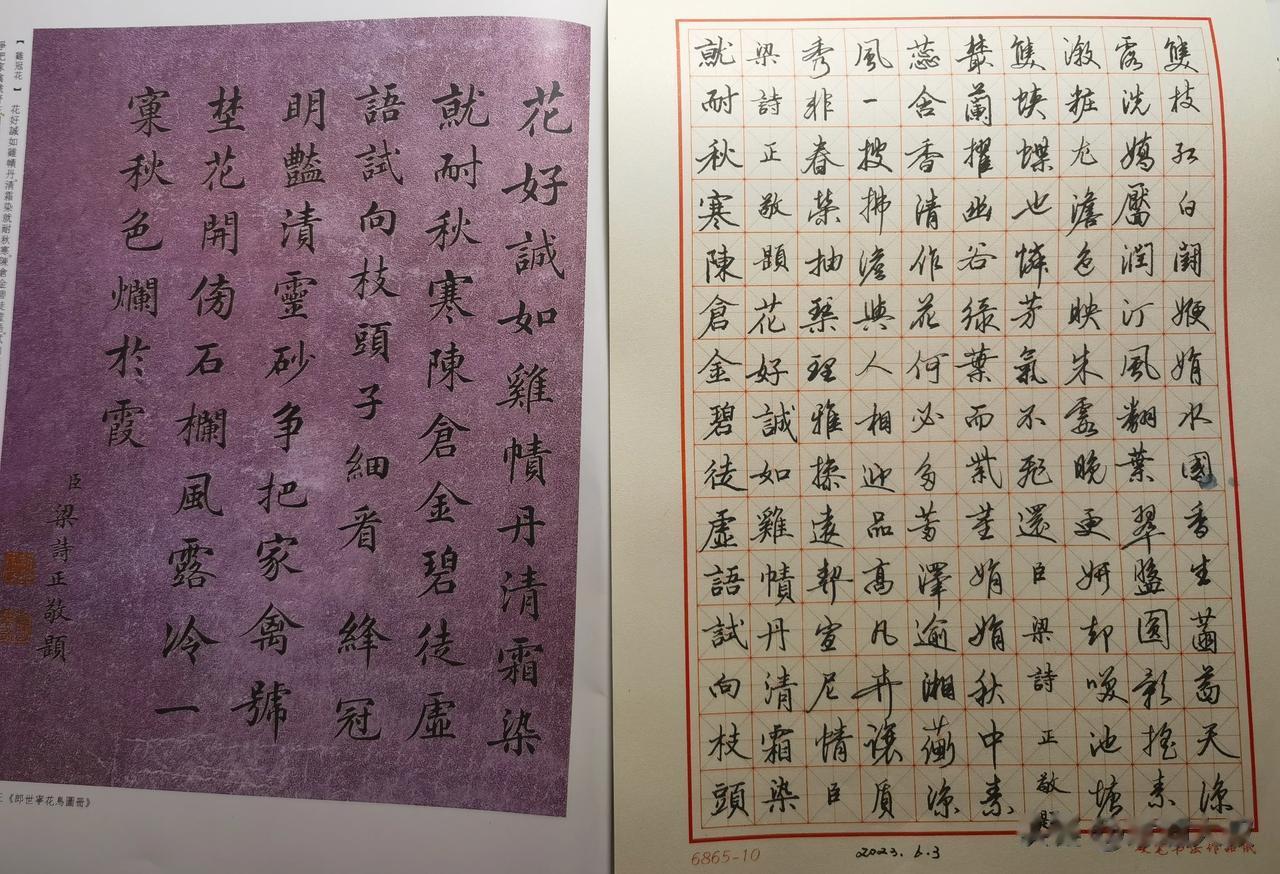 花好誠如雞幘丹清霜染
就耐秋寒陳倉金碧徒虛
語試向枝頭子細看 絳冠
明豔漬靈砂争把家禽號
埜花開傍石欄風露冷一
窠秋色爛於霞
臣梁詩正敬題
【雞冠花】花好誠如雞幘丹。清霜染就耐秋寒。陳倉金碧徒虛語
《郎世寧花鳥圖冊》
雙枝紅白鬭㛹娟水國香生菡萏天涼
露洗嬌靨潤汀風翻葉翠盤圓影搖素
漵粧尤澹色映朱霞晚更妍却嘆池塘
雙蛺蝶也憐芳氣不飛還臣梁詩正敬題
叢蘭擢幽谷綠葉而紫莖娟娟秋中素
蕊含香清作花何必多芳澤逾湘蘅涼
風一披拂澹與人相迎品高凡卉讓質
秀非春榮抽琴理雅操遠契宣尼情臣
梁詩正敬題花好誠如雞幘丹清霜染
就耐秋寒陳倉金碧徒虛語試向枝頭
6865-10
2023.6.3